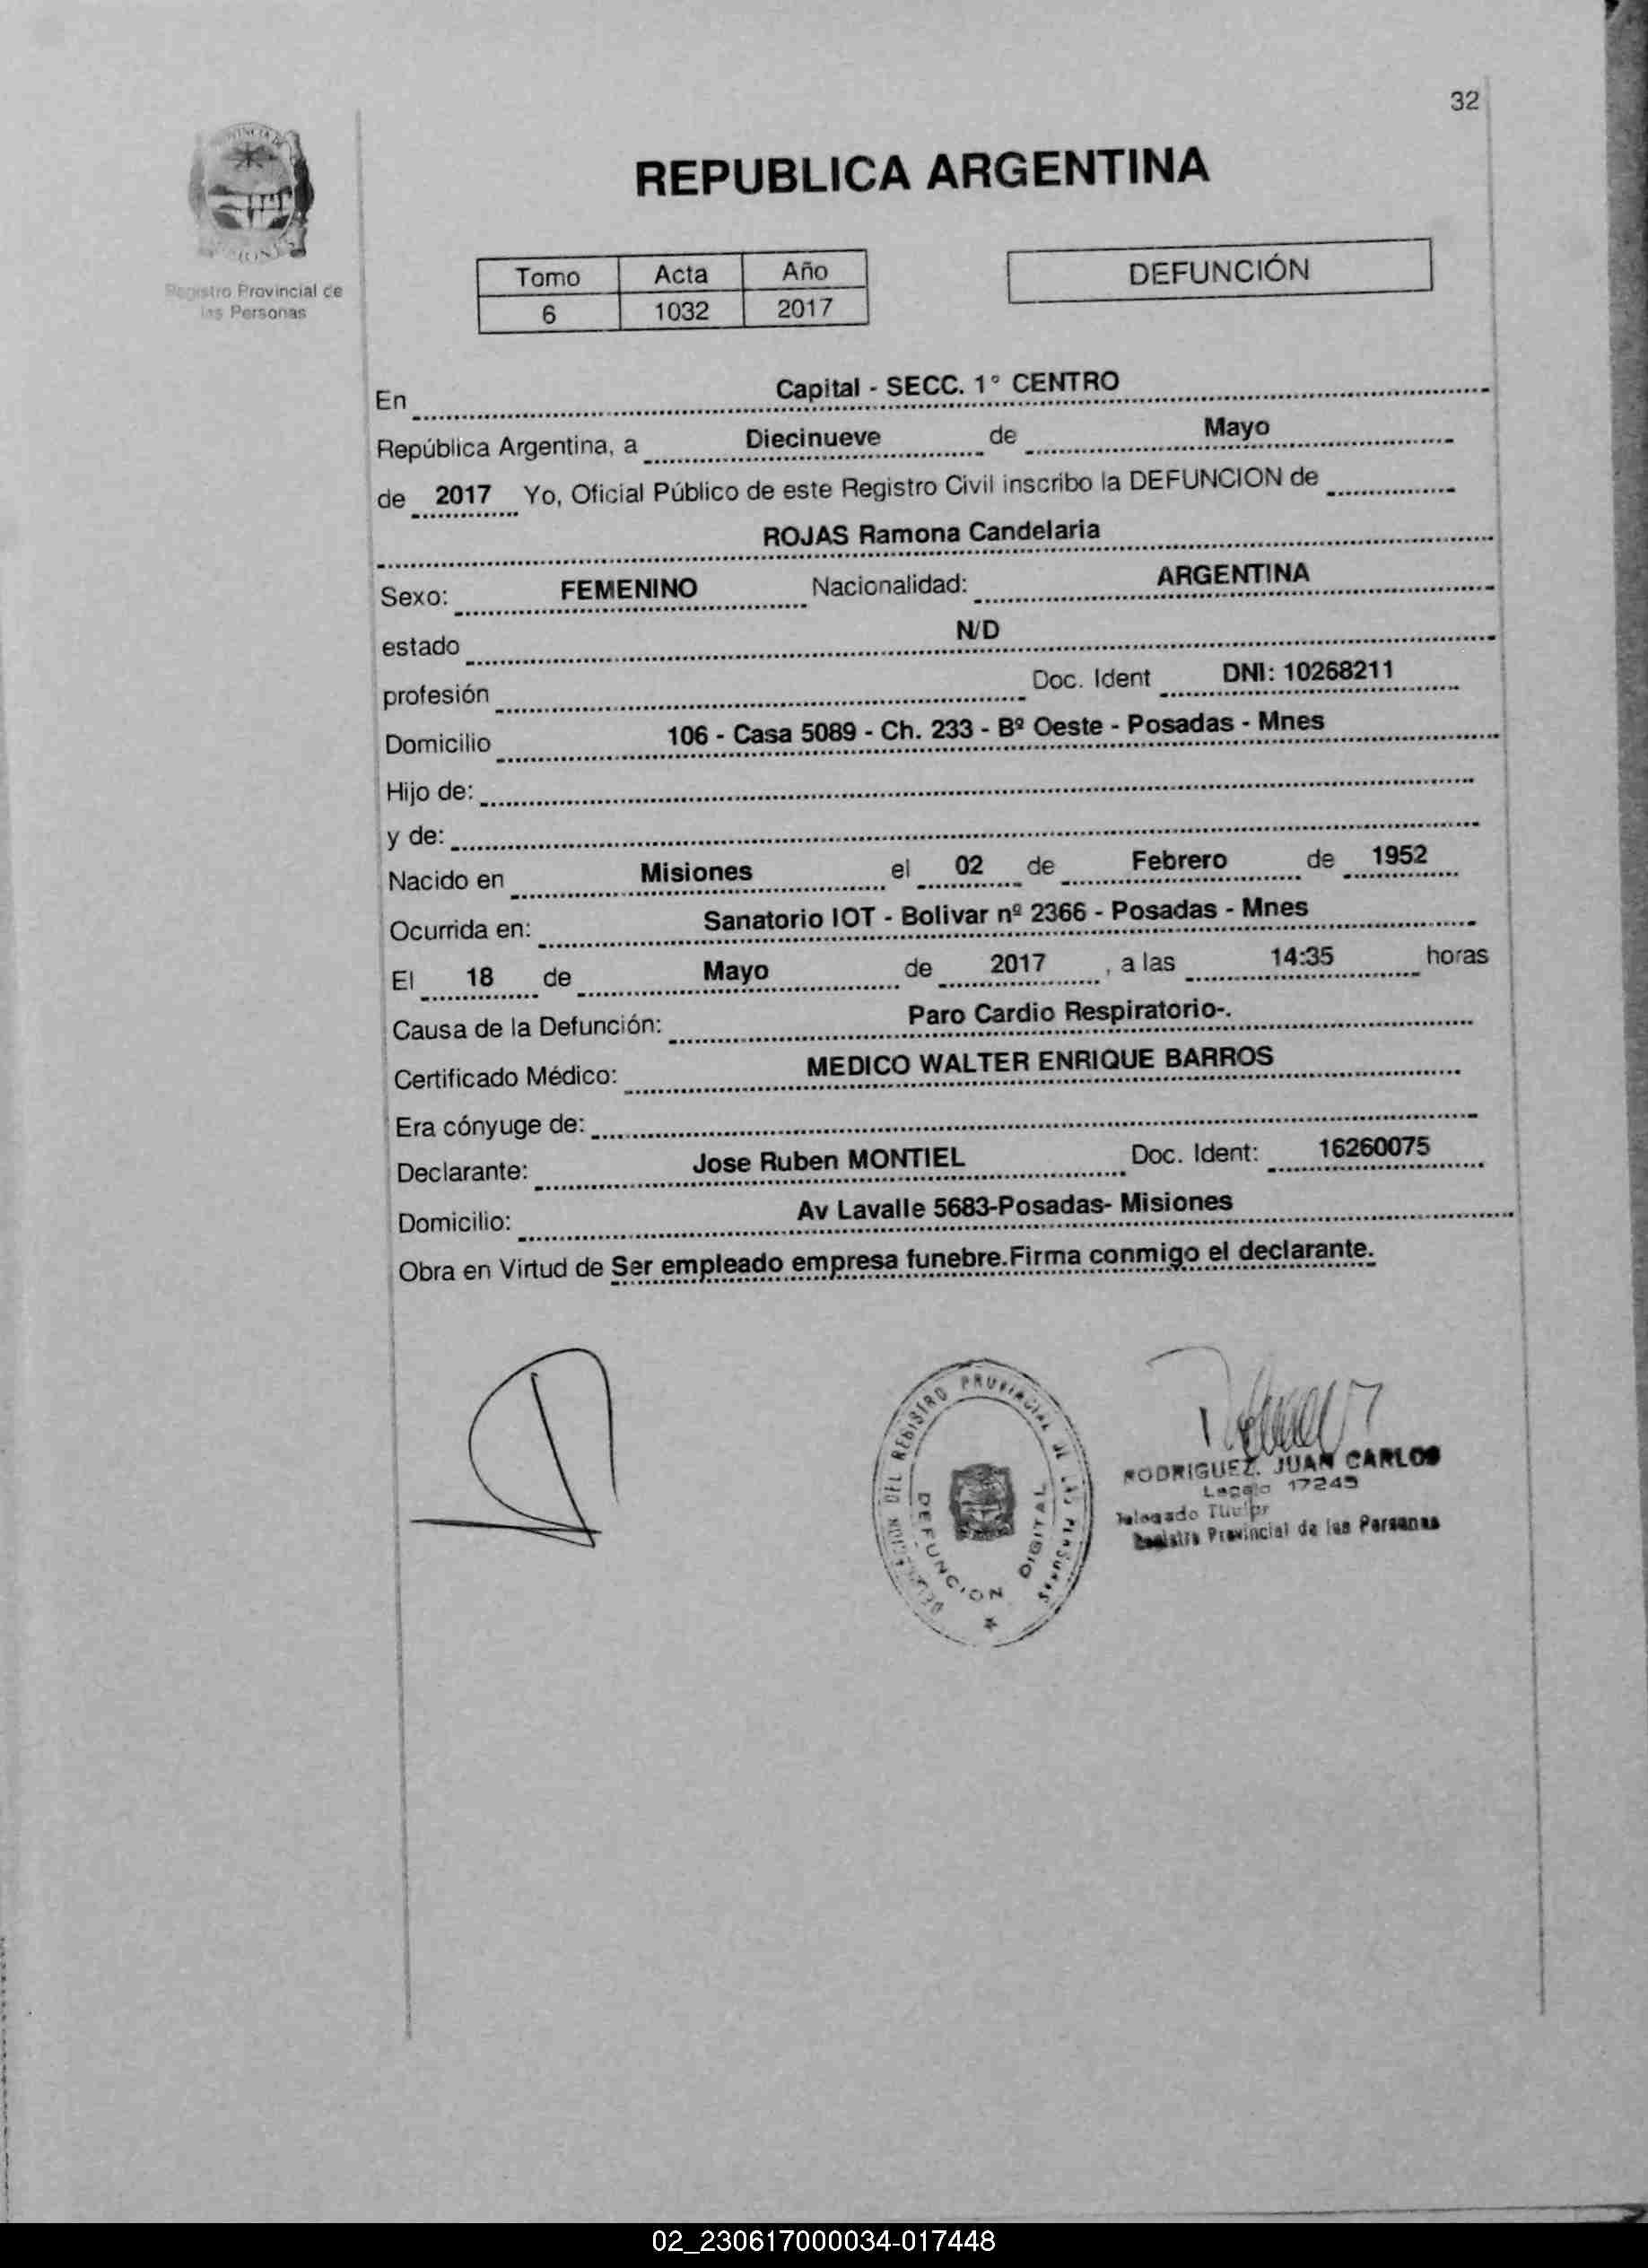 32
REPUBLICA ARGENTINA
Registro Provincial de
las Personas
Tomo Acta Año
6 1032 2017
DEFUNCIÓN
En Capital - SECC. 1° CENTRO
República Argentina, a Diecinueve de Mayo
de 2017 Yo, Oficial Público de este Registro Civil inscribo la DEFUNCION de
ROJAS Ramona Candelaria
Sexo: FEMENINO Nacionalidad: ARGENTINA
estado N/D
profesión Doc. Ident DNI: 10268211
Domicilio 106 - Casa 5089 - Ch. 233 - Bº Oeste - Posadas - Mnes
Hijo de:
y de:
Nacido en Misiones el 02 de Febrero de 1952
Ocurrida en: Sanatorio IOT - Bolivar nº 2366 - Posadas - Mnes
El 18 de Mayo de 2017 , a las 14:35 horas
Causa de la Defunción: Paro Cardio Respiratorio-.
Certificado Médico: MEDICO WALTER ENRIQUE BARROS
Era cónyuge de:
Declarante: Jose Ruben MONTIEL Doc. Ident: 16260075
Domicilio: Av Lavalle 5683-Posadas- Misiones
Obra en Virtud de Ser empleado empresa funebre.Firma conmigo el declarante.
DEL REGISTRO PROVINCIAL DE LAS PERSONAS
DEFUNCION DIGITAL
RODRIGUEZ. JUAN CARLOS
Legajo 17245
Delegado Titular
Registro Provincial de las Personas
02_230617000034-017448